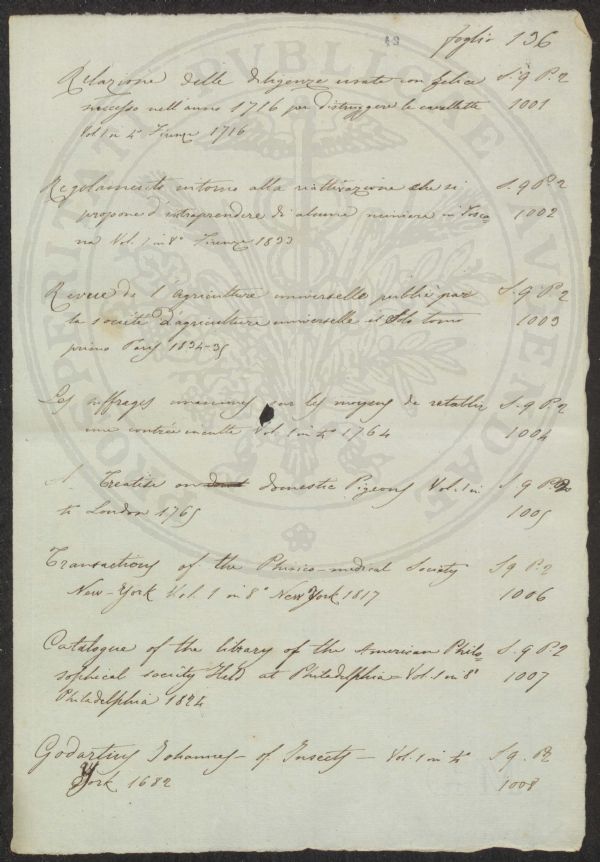 foglio 136
Relazione delle diligenze usate con felice S. 9 P. 2
successo nell'anno 1716 per distruggere le cavallette 1001
Vol. 1 in 4° Firenze 1716
Regolamento intorno alla riattivazione che si S. 9 P. 2
propone d'intraprendere di alcune miniere in Tosca- 1002
na Vol. 1 in 8° Firenze 1833
Revue de l'Agriculture universelle publié par S. 9 P. 2
la société d'agriculture universelle il solo tomo 1003
primo Paris 1834-35
Les suffrages unanimes sur les moyens de retablir S. 9 P. 2
une contrée inculte Vol. 1 in 4° 1764 1004
A Treatise on domestic Pigeons Vol. 1 in S. 9 P. 2
London 1765 1005
Transactions of the Phisico-medical Society S. 9 P. 2
New-York Vol. 1 in 8° New York 1817 1006
Catalogue of the library of the American Philo- S. 9 P. 2
sophical society Held at Philadelphia - Vol. 1 in 8° 1007
Philadelphia 1824
Godartius Johannes - of Insects - Vol. 1 in 4° S. 9. P. 2
York 1682 1008
PROSPERITATI PUBLICAE AUGENDAE